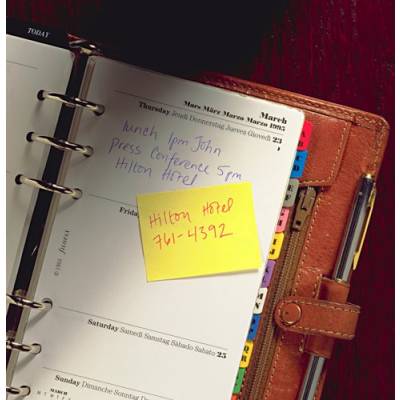 TODAY
March
Mars März Marzo Marzo 1995
Thursday Jeudi Donnerstag Jueves Giovedì 23
lunch 1pm John
Press Conference 5pm
Hilton Hotel
Friday
Hilton Hotel
761-4392
Saturday Samedi Samstag Sábado Sabato 25
Sunday Dimanche Sonntag Domingo
MARCH